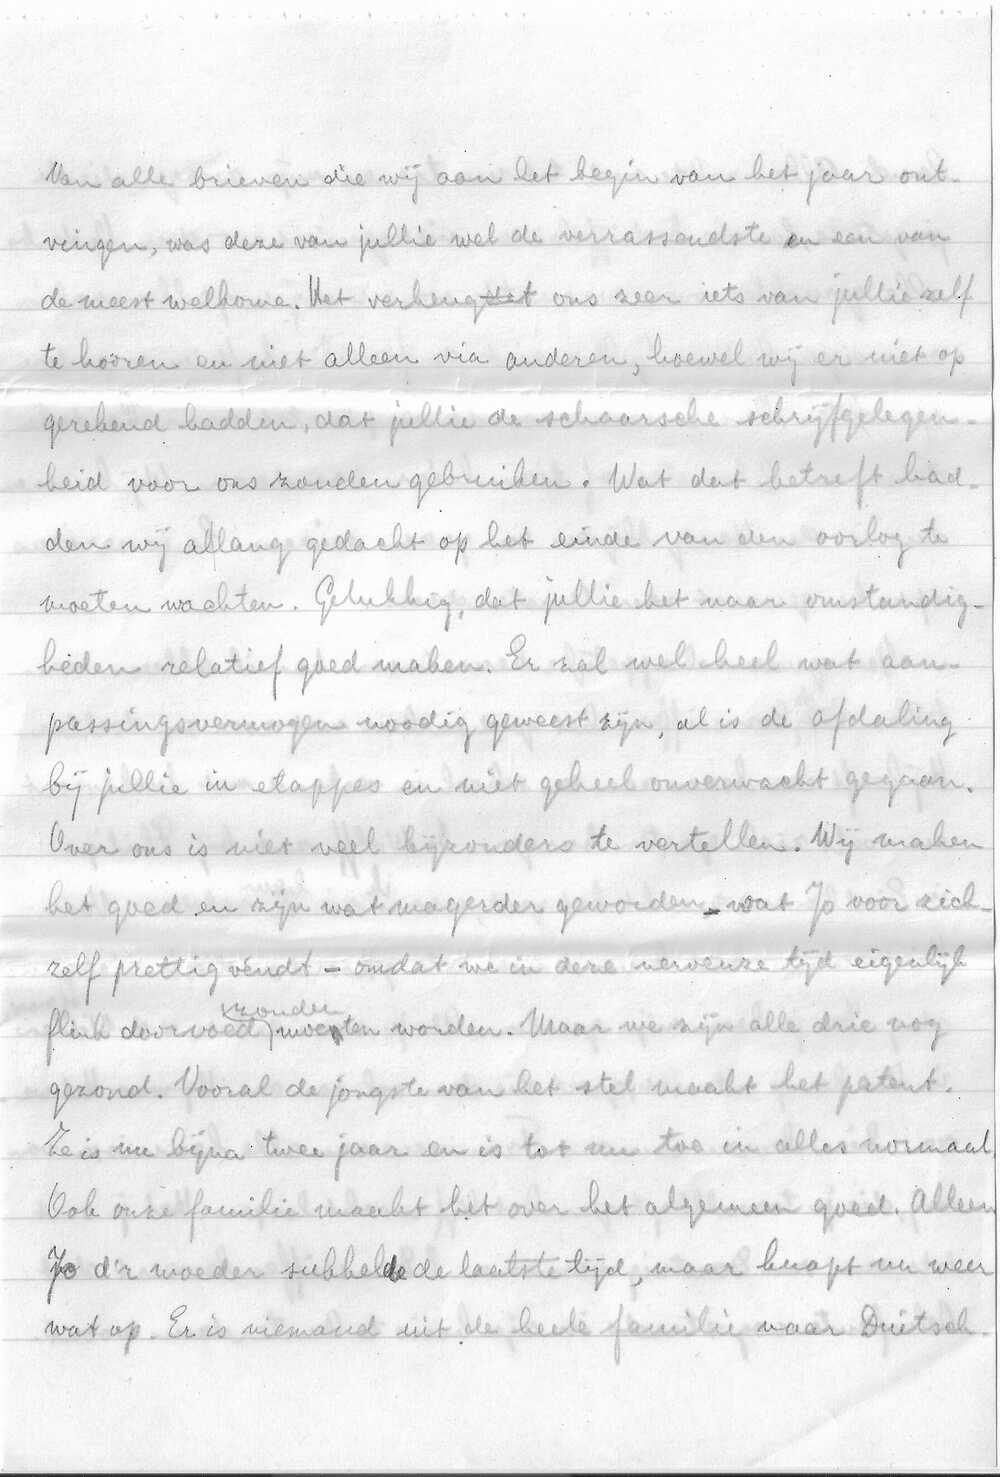 Van alle brieven die wij aan het begin van het jaar ont-
vingen, was deze van jullie wel de verrassendste en een van
de meest welkome. Het verheugt ons zeer iets van jullie zelf
te hooren en niet alleen via anderen, hoewel wij er niet op
gerekend hadden, dat jullie de schaarsche schrijfgelegen-
heid voor ons zouden gebruiken. Wat dat betreft had-
den wij allang gedacht op het einde van den oorlog te
moeten wachten. Gelukkig, dat jullie het naar omstandig-
heden relatief goed maken. Er zal wel heel wat aan-
passingsvermogen noodig geweest zijn, al is de afdaling
bij jullie in etappes en niet geheel onverwacht gegaan.
Over ons is niet veel bijzonders te vertellen. Wij maken
het goed en zijn wat magerder geworden - wat Jo voor zich-
zelf prettig vindt - omdat we in deze nerveuze tijd eigenlijk
flink doorvoed zouden moeten worden. Maar we zijn alle drie nog
gezond. Vooral de jongste van het stel maakt het patent.
Ze is nu bijna twee jaar en is tot nu toe in alles normaal.
Ook onze familie maakt het over het algemeen goed. Alleen
Jo d'r moeder sukkelde de laatste tijd, maar knapt nu weer
wat op. Er is niemand uit de heele familie naar Duitsch-